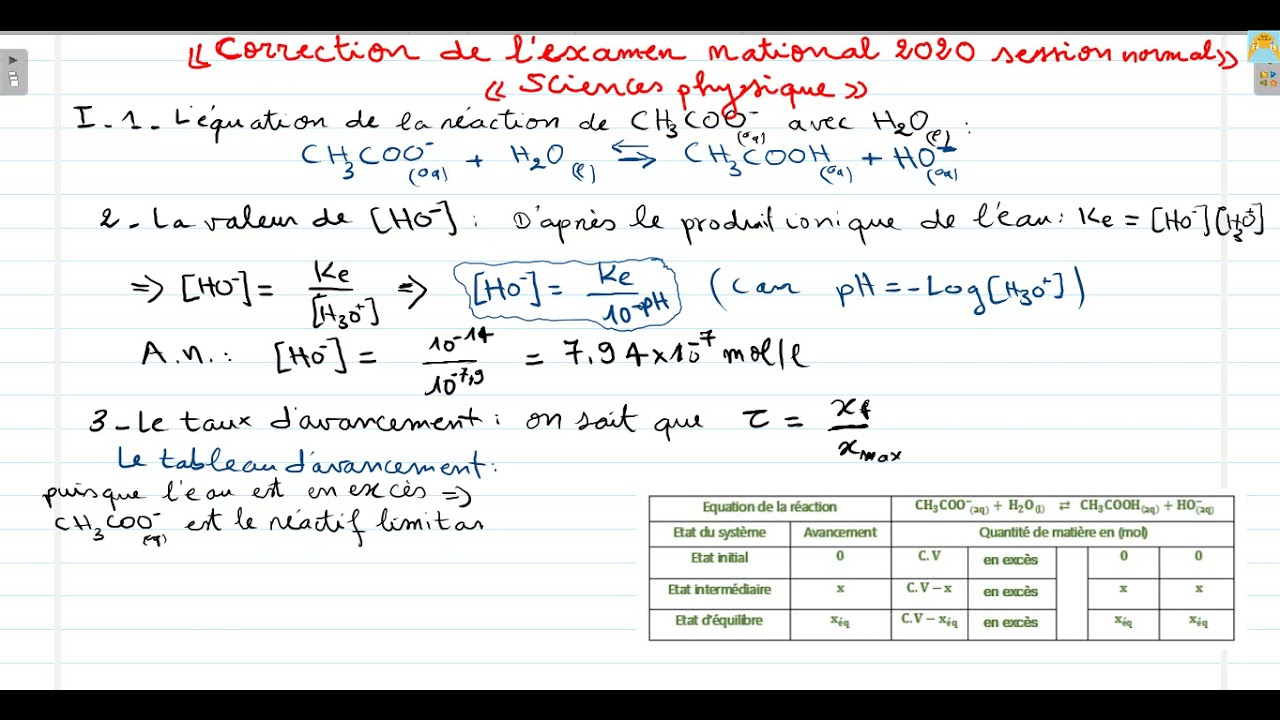 « Correction de l'examen national 2020 session normal »
« Sciences physique »
I.1- L'équation de la réaction de CH₃COO⁻(aq) avec H₂O(ℓ) :
CH₃COO⁻(aq) + H₂O(ℓ) ⇌ CH₃COOH(aq) + HO⁻(aq)
2- La valeur de [HO⁻] : D'après le produit ionique de l'eau : Ke = [HO⁻][H₃O⁺]
⇒ [HO⁻] = Ke/[H₃O⁺] ⇒ [HO⁻] = Ke/10^-pH (car pH = -Log[H₃O⁺])
A.n. : [HO⁻] = 10^-14/10^-7,9 = 7,94×10^-7 mol/l
3- Le taux d'avancement : on sait que τ = xf/xmax
Le tableau d'avancement :
puisque l'eau est en excès ⇒
CH₃COO⁻(aq) est le réactif limitan
Equation de la réaction CH₃COO⁻(aq) + H₂O(l) ⇄ CH₃COOH(aq) + HO⁻(aq)
Etat du système Avancement Quantité de matière en (mol)
Etat initial 0 C.V en excès 0 0
Etat intermédiaire x C.V – x en excès x x
Etat d'équilibre xéq C.V – xéq en excès xéq xéq